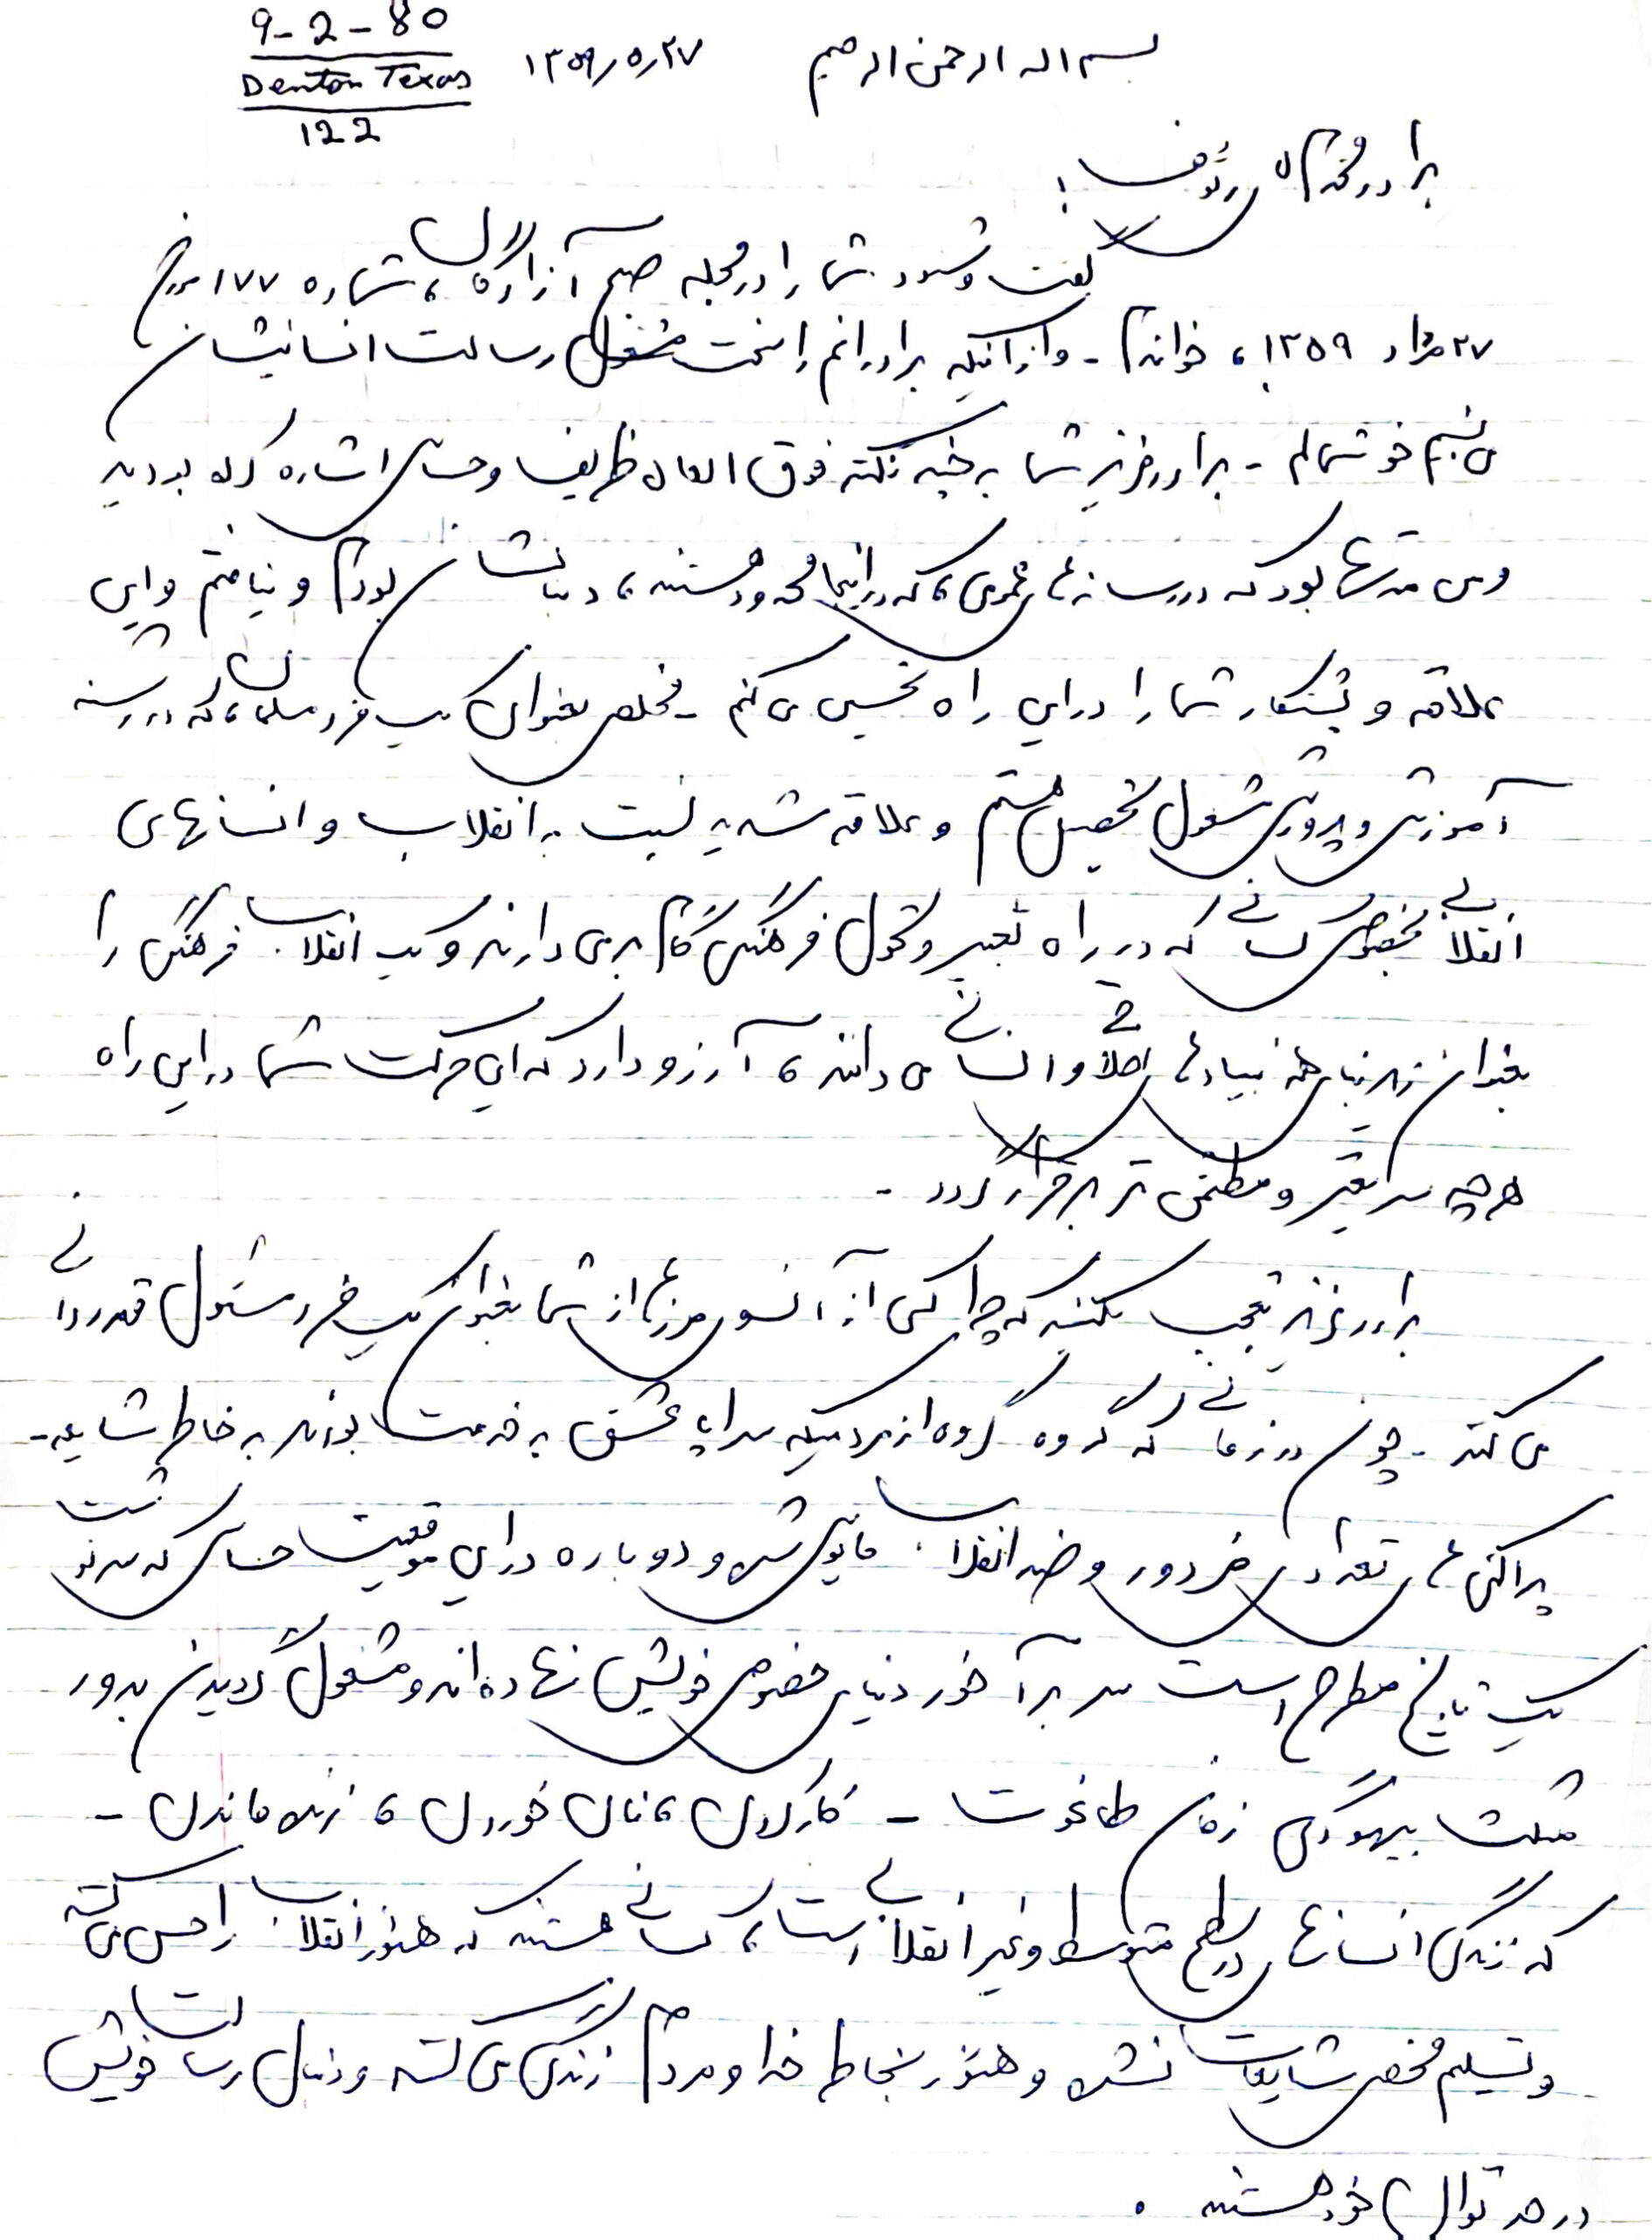 9-2-80
Denton Texas
122
۱۳۵۹٫۵٫۲۷
بسم اله الرحمن الرحیم
برادر محترم رئوف!
گفت و شنود شما را در مجله صبح آزادگان، شماره ۱۷۷ مورخ
۲۷ مرداد ۱۳۵۹، خواندم - و از اینکه برادرانم را سخت مشغول رسالت انسانیشان
می بینم خوشحالم - برادر عزیز شما به چند نکته فوق العاده ظریف و حساس اشاره کرده بودید
و من مدتها بود که در رسانه های عمومی، که در اینجا محدود هستند، دنبالشان بودم و نیافتم و این
علاقه و پشتکار شما را در این راه تحسین می کنم - مخلص بعنوان یک فرد مسلمان، که در رشته
آموزش و پرورش مشغول تحصیل هستم و علاقه شدید نسبت به انقلاب و انسانهای
انقلابی بخصوص کسانی که در راه تغییر و تحول فرهنگی گام بر می دارند و یک انقلاب فرهنگی را
بعنوان زیر بنای همه بنیادهای اخلاقی و انسانی می دانند، آرزو دارد که این حرکت شما در این راه
هر چه سریعتر و مطمئن تر برقرار گردد -
برادر عزیز تعجب نکنید که چرا کسی از آنسوی مرزها از شما بعنوان یک فرد مسئول قدردانی
می کند - چون در زمانی که گروه گروه از مردمیکه سراپا عشق به خدمت بودند به خاطر شایعه -
پراکنی های تعدادی خر دور و ضد انقلاب مایوس شده و دوباره در این موقعیت حساس که سرنوشت
یک تاریخ مطرح است سر بر آخور دنیای خصوصی خویش نهاده اند و مشغول گردیدن بدور
مثلث بیهودگی زمان طاغوت - کار کردن، نان خوردن، زنده ماندن -
که زندگی انسانها در سطح متوسط و غیر انقلابی است، کسانی هستند که هنوز انقلاب را حس می کنند
و تسلیم محض شایعات نشده و هنوز بخاطر خدا و مردم زندگی می کنند و دنبال رسالت خویش
در حد توان خود هستند .